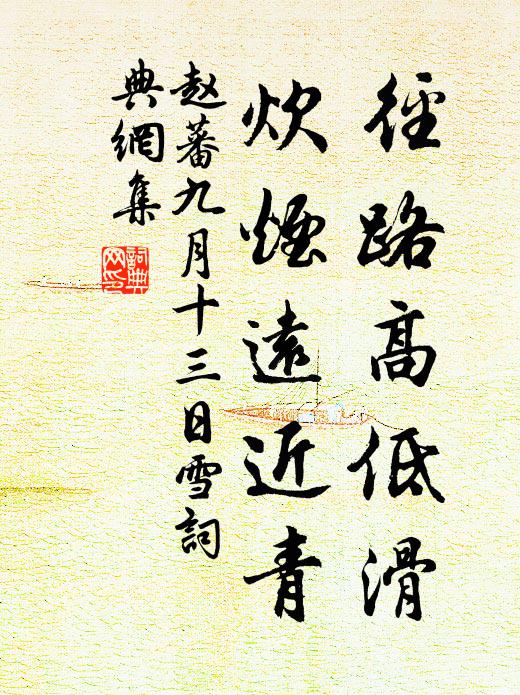 徑路高低滑
炊煙遠近青
赵蕃九月十三日雪詞
典網集
詞典网印